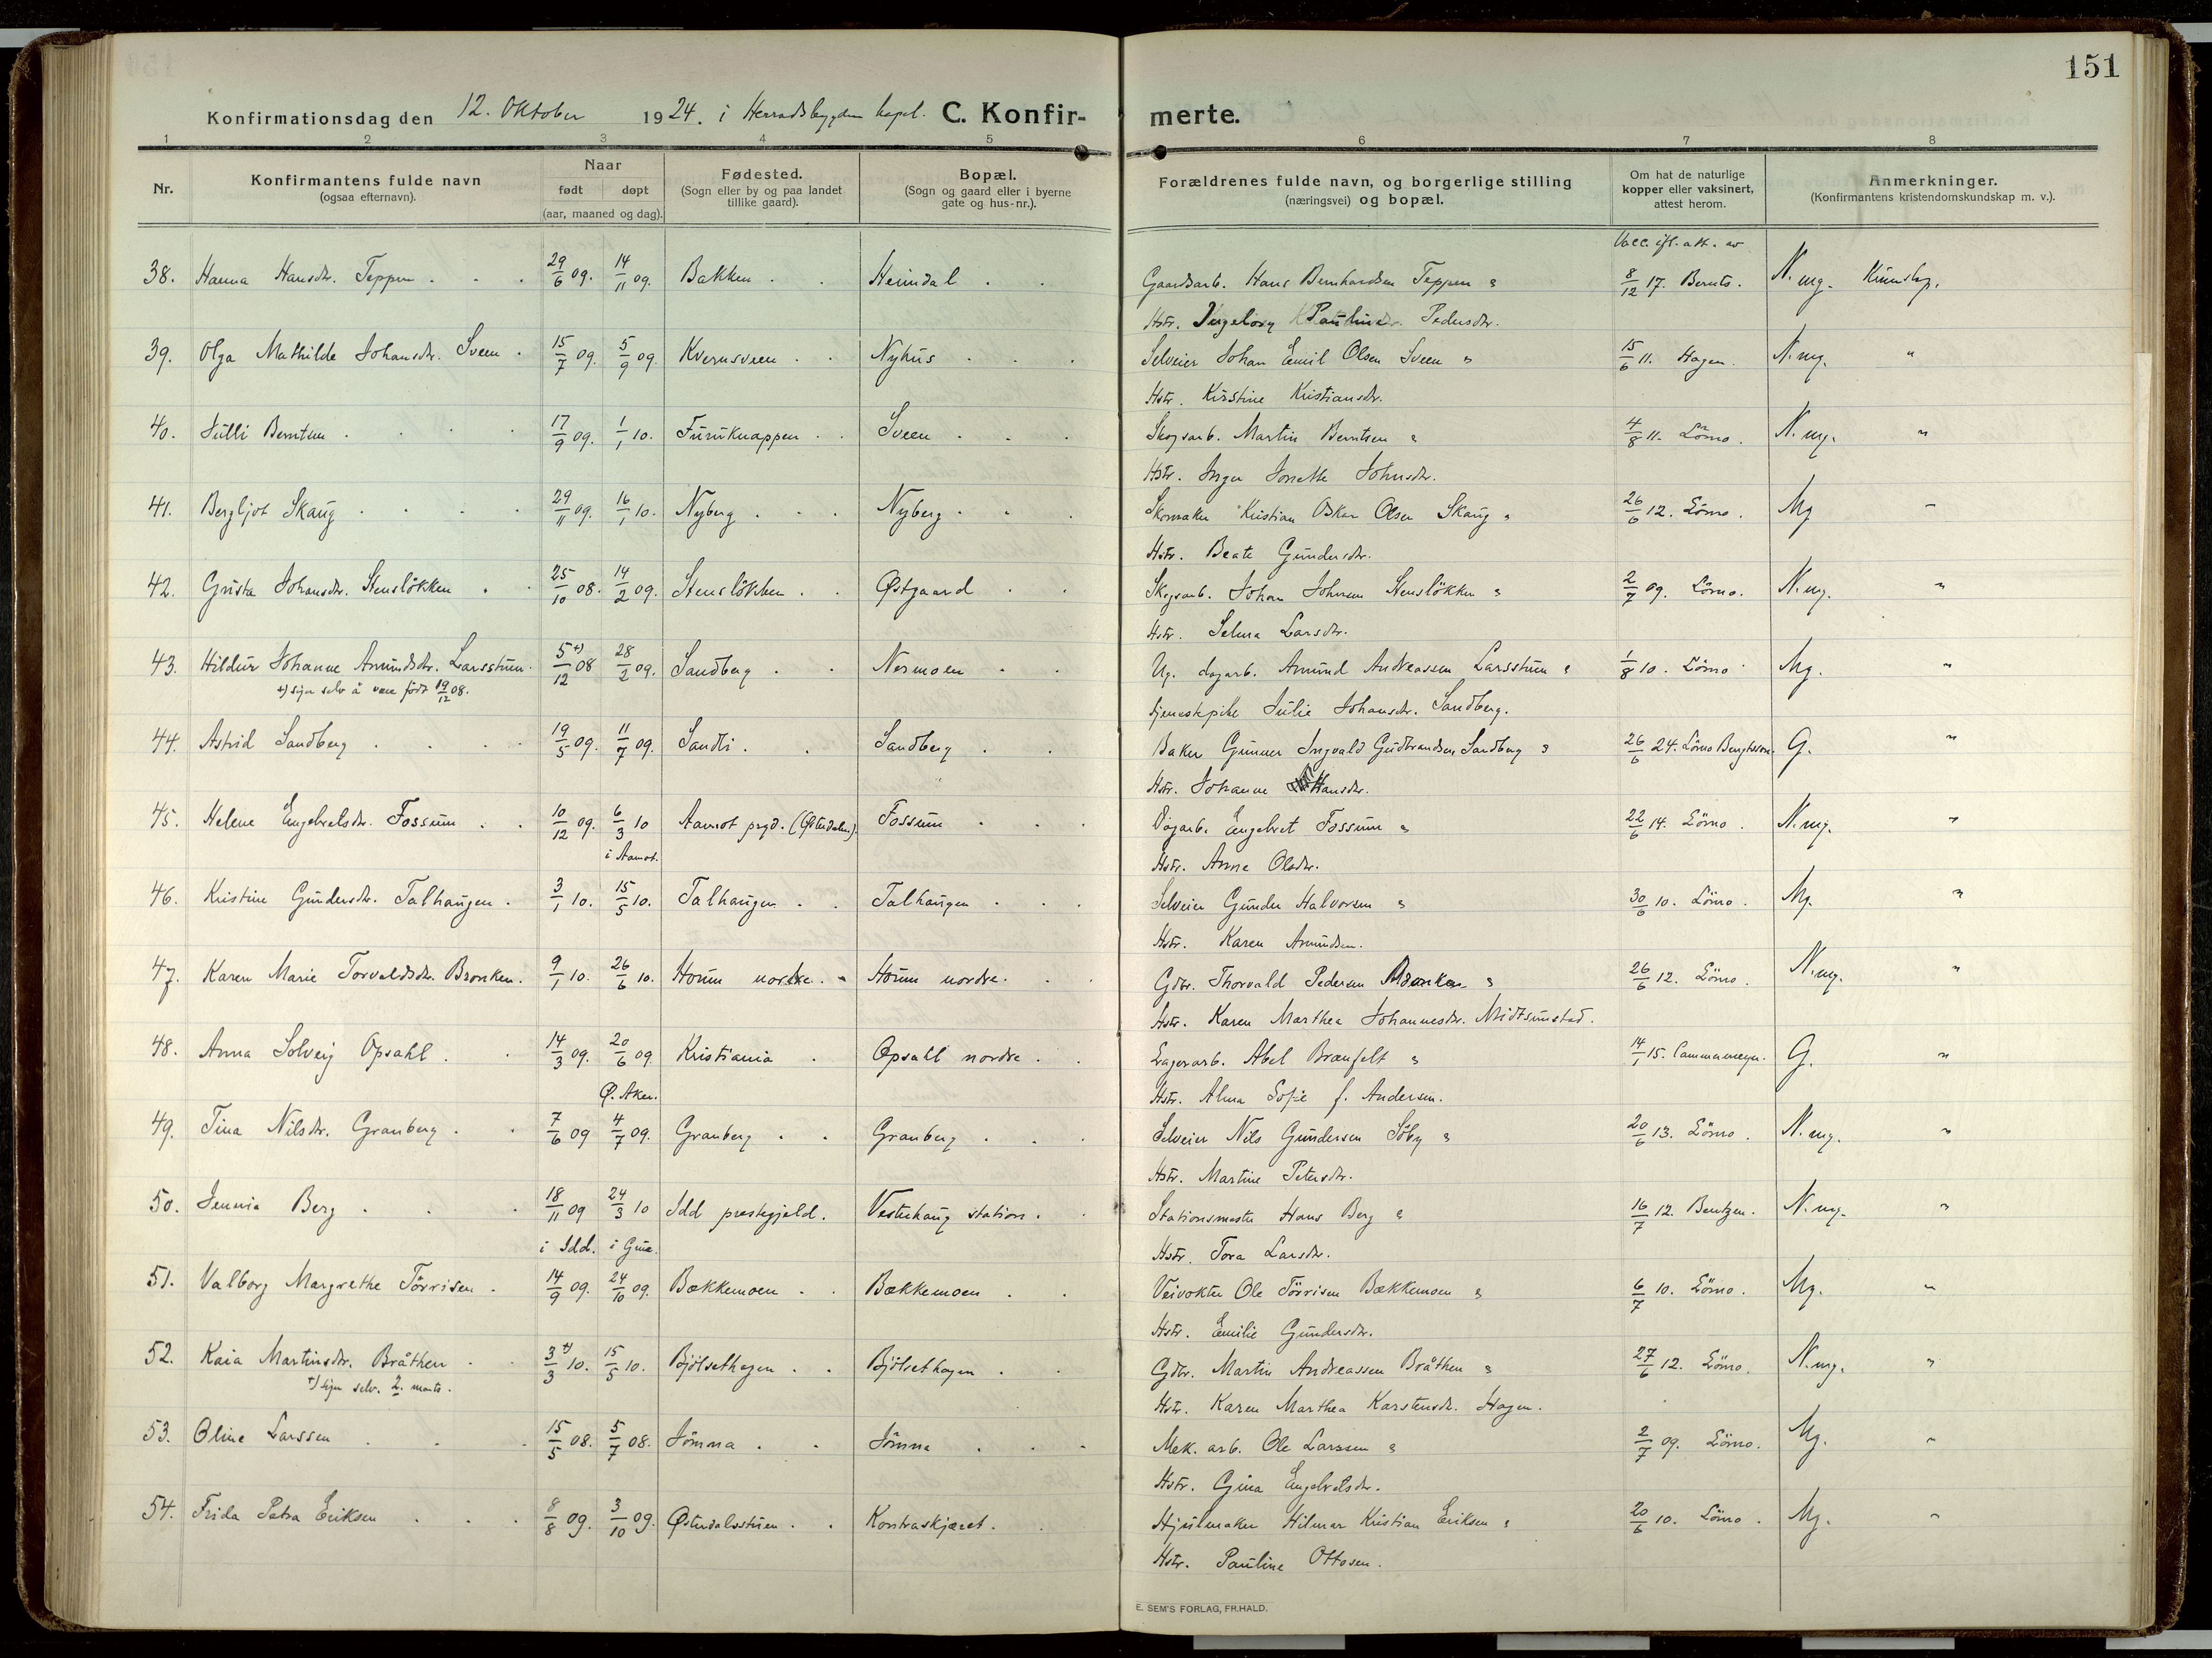 151
Konfirmationsdag den 12. Oktober 1924. i Herradsbygden kapel. C. Konfirmerte.
1 2 3 4 5 6 7 8
Nr. Konfirmantens fulde navn (ogsaa efternavn). Naar født døpt (aar, maaned og dag). Fødested. (Sogn eller by og paa landet tillike gaard). Bopæl. (Sogn og gaard eller i byerne gate og hus-nr.). Forældrenes fulde navn, og borgerlige stilling (næringsvei) og bopæl. Om hat de naturlige kopper eller vaksinert, attest herom. Anmerkninger. (Konfirmantens kristendomskundskap m. v.).
Vacc. ifl. att. av
38. Hanna Hansdr. Teppen 29/6 09. 14/11 09. Bakken Heimdal Gaardsarb. Hans Bernhardsen Teppen & 8/12 17. Bernts. N. mg. Kundskp.
Hstr. Ingeborg Pauline Pedersdr.
39. Olga Mathilde Johansdr. Sveen 15/7 09. 5/9 09. Kvernsveen Nyhus Selveier Johan Emil Olsen Sveen & 15/6 11. Hagen. N. mg. "
Hstr. Kirstine Kristiansdr.
40. Julli Berntsen 17/9 09. 1/1 10. Furuknappen Sveen Skogsarb. Martin Berntsen & 4/8 11. Lömo. N. mg. "
Hstr. Inger Jonette Johnsdr.
41. Bergljot Skaug 29/11 09. 16/1 10. Nyberg Nyberg Skomaker Kristian Oskar Olsen Skaug & 26/6 12. Lömo. Mg "
Hstr. Beate Gundersdr.
42. Gusta Johansdr. Stenslökken 25/10 08. 14/2 09. Stenslökken Østgaard Skogsarb. Johan Johnsen Stenslökken & 2/7 09. Lömo. N. mg. "
Hstr. Selma Larsdr.
43. Hildur Johanne Amundsdr. Larsstuen. 5/12 +) 08 28/2 09. Sandberg Nermoen Ug. dagarb. Amund Andreassen Larsstuen & 1/8 10. Lömo Mg. "
+) siger selv å være født 19/12 08. tjenestepike Julie Johansdr. Sandberg.
44. Astrid Sandberg 19/5 09. 11/7 09. Sandli Sandberg Baker Gunner Ingvald Gudbrandsen Sandberg & 26/6 24. Lömo Bengtsson. G. "
Hstr. Johanne Hansdr.
45. Helene Engebretsdr. Fossum 10/12 09. 6/3 10 Aamot prgd. (Østerdalen). Fossum Dagarb. Engebret Fossum & 22/6 14. Lömo. N. mg. "
i Aamot. Hstr. Anne Olsdr.
46. Kristine Gundersdr. Talhaugen. 3/1 10. 15/5 10. Talhaugen Talhaugen Selveier Gunder Halvorsen & 30/6 10. Lömo. Mg. "
Hstr. Karen Amundsen.
47. Karen Marie Torvaldsdr. Bronken. 9/1 10. 26/6 10. Hornn nordre. Hornn nordre. Gdbr. Thorvald Pedersen Bronken & 26/6 12. Lömo. N. mg. "
Hstr. Karen Marthea Johannesdr. Midtsunstad.
48. Anna Solveig Opsahl 14/3 09. 20/6 09 Kristiania Opsahl nordre Lagerarb. Abel Branfelt & 14/1 15. Cammameyer. G. "
Ø. Aker. Hstr. Alma Sofie f. Andersen.
49. Tina Nilsdr. Granberg 7/6 09 4/7 09. Granberg Granberg Selveier Nils Gundersen Söby & 20/6 13. Lömo. N. mg. "
Hstr. Martine Petersdr.
50. Jennia Berg 18/11 09 24/3 10 Idd prestegjeld. Vesterhaug station. Stationsmester Hans Berg & 16/7 12. Bentzen. N. mg. "
i Idd. i Grue. Hstr. Tora Larsdr.
51. Valborg Margrethe Törrisen 14/9 09. 24/10 09. Bækkemoen Bækkemoen Veivokter Ole Törrisen Bækkemoen & 6/7 10. Lömo. Mg. "
Hstr. Emilie Gundersdr.
52. Kaia Martinsdr. Bråthen 3/3 +) 10. 15/5 10. Bjölsethagen Bjölsethagen Gdbr. Martin Andreassen Bråthen & 27/6 12. Lömo. N. mg. "
+) siger selv. 2. marts. Hstr. Karen Marthea Karstensdr. Hagen.
53. Oline Larssen 15/5 08. 5/7 08. Jömna Jömna Mek. arb. Ole Larssen & 2/7 09. Lömo. Mg. "
Hstr. Gina Engebretsdr.
54. Frida Petra Eriksen 8/8 09. 3/10 09. Østerdalsstuen Kontraskjæret. Hjulmaker Hilmar Kristian Eriksen & 20/6 10. Lömo. Mg. "
Hstr. Pauline Ottosen.
E. SEM'S FORLAG, FR.HALD.